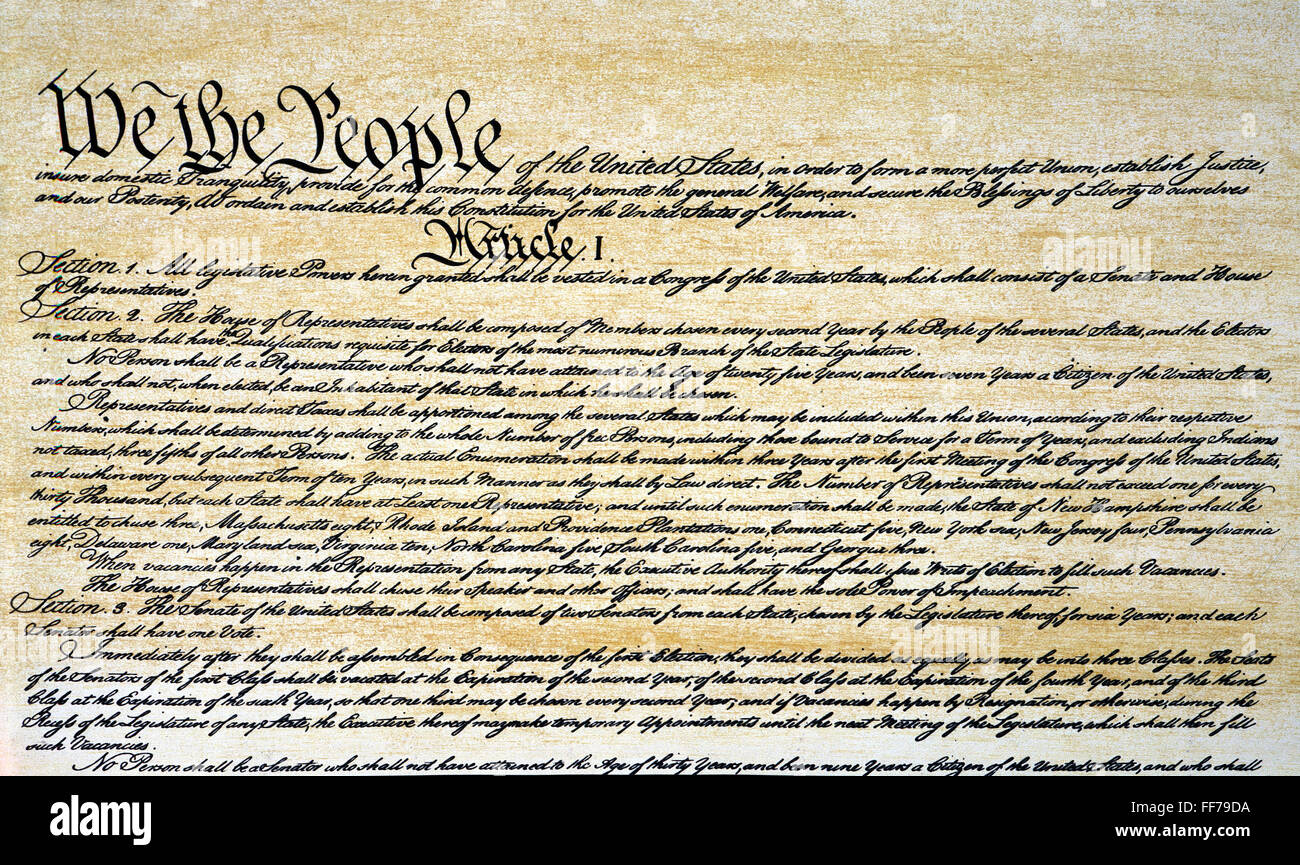 We the People of the United States, in order to form a more perfect Union, establish Justice,
insure domestic Tranquility, provide for the common defence, promote the general Welfare, and secure the Blessings of Liberty to ourselves
and our Posterity, do ordain and establish this Constitution for the United States of America.
Article I.
Section. 1. All legislative Powers herein granted shall be vested in a Congress of the United States, which shall consist of a Senate and House
of Representatives.
Section. 2. The House of Representatives shall be composed of Members chosen every second Year by the People of the several States, and the Electors
in each State shall have the Qualifications requisite for Electors of the most numerous Branch of the State Legislature.
No Person shall be a Representative who shall not have attained to the Age of twenty five Years, and been seven Years a Citizen of the United States,
and who shall not, when elected, be an Inhabitant of that State in which he shall be chosen.
Representatives and direct Taxes shall be apportioned among the several States which may be included within this Union, according to their respective
Numbers, which shall be determined by adding to the whole Number of free Persons, including those bound to Service for a Term of Years, and excluding Indians
not taxed, three fifths of all other Persons. The actual Enumeration shall be made within three Years after the first Meeting of the Congress of the United States,
and within every subsequent Term of ten Years, in such Manner as they shall by Law direct. The Number of Representatives shall not exceed one for every
thirty Thousand, but each State shall have at Least one Representative; and until such enumeration shall be made, the State of New Hampshire shall be
entitled to chuse three, Massachusetts eight, Rhode Island and Providence Plantations one, Connecticut five, New York six, New Jersey four, Pennsylvania
eight, Delaware one, Maryland six, Virginia ten, North Carolina five South Carolina five, and Georgia three.
When vacancies happen in the Representation from any State, the Executive Authority thereof shall issue Writs of Election to fill such Vacancies.
The House of Representatives shall chuse their Speaker and other Officers; and shall have the sole Power of Impeachment.
Section. 3. The Senate of the United States shall be composed of two Senators from each State, chosen by the Legislature thereof, for six Years; and each
Senator shall have one Vote.
Immediately after they shall be assembled in Consequence of the first Election, they shall be divided as equally as may be into three Classes. The Seats
of the Senators of the first Class shall be vacated at the Expiration of the second Year, of the second Class at the Expiration of the fourth Year, and of the third
Class at the Expiration of the sixth Year, so that one third may be chosen every second Year; and if Vacancies happen by Resignation, or otherwise, during the
Recess of the Legislature of any State, the Executive thereof may make temporary Appointments until the next Meeting of the Legislature, which shall then fill
such Vacancies.
No Person shall be a Senator who shall not have attained to the Age of thirty Years, and been nine Years a Citizen of the United States, and who shall
alamy
Image ID: FF79DA
www.alamy.com